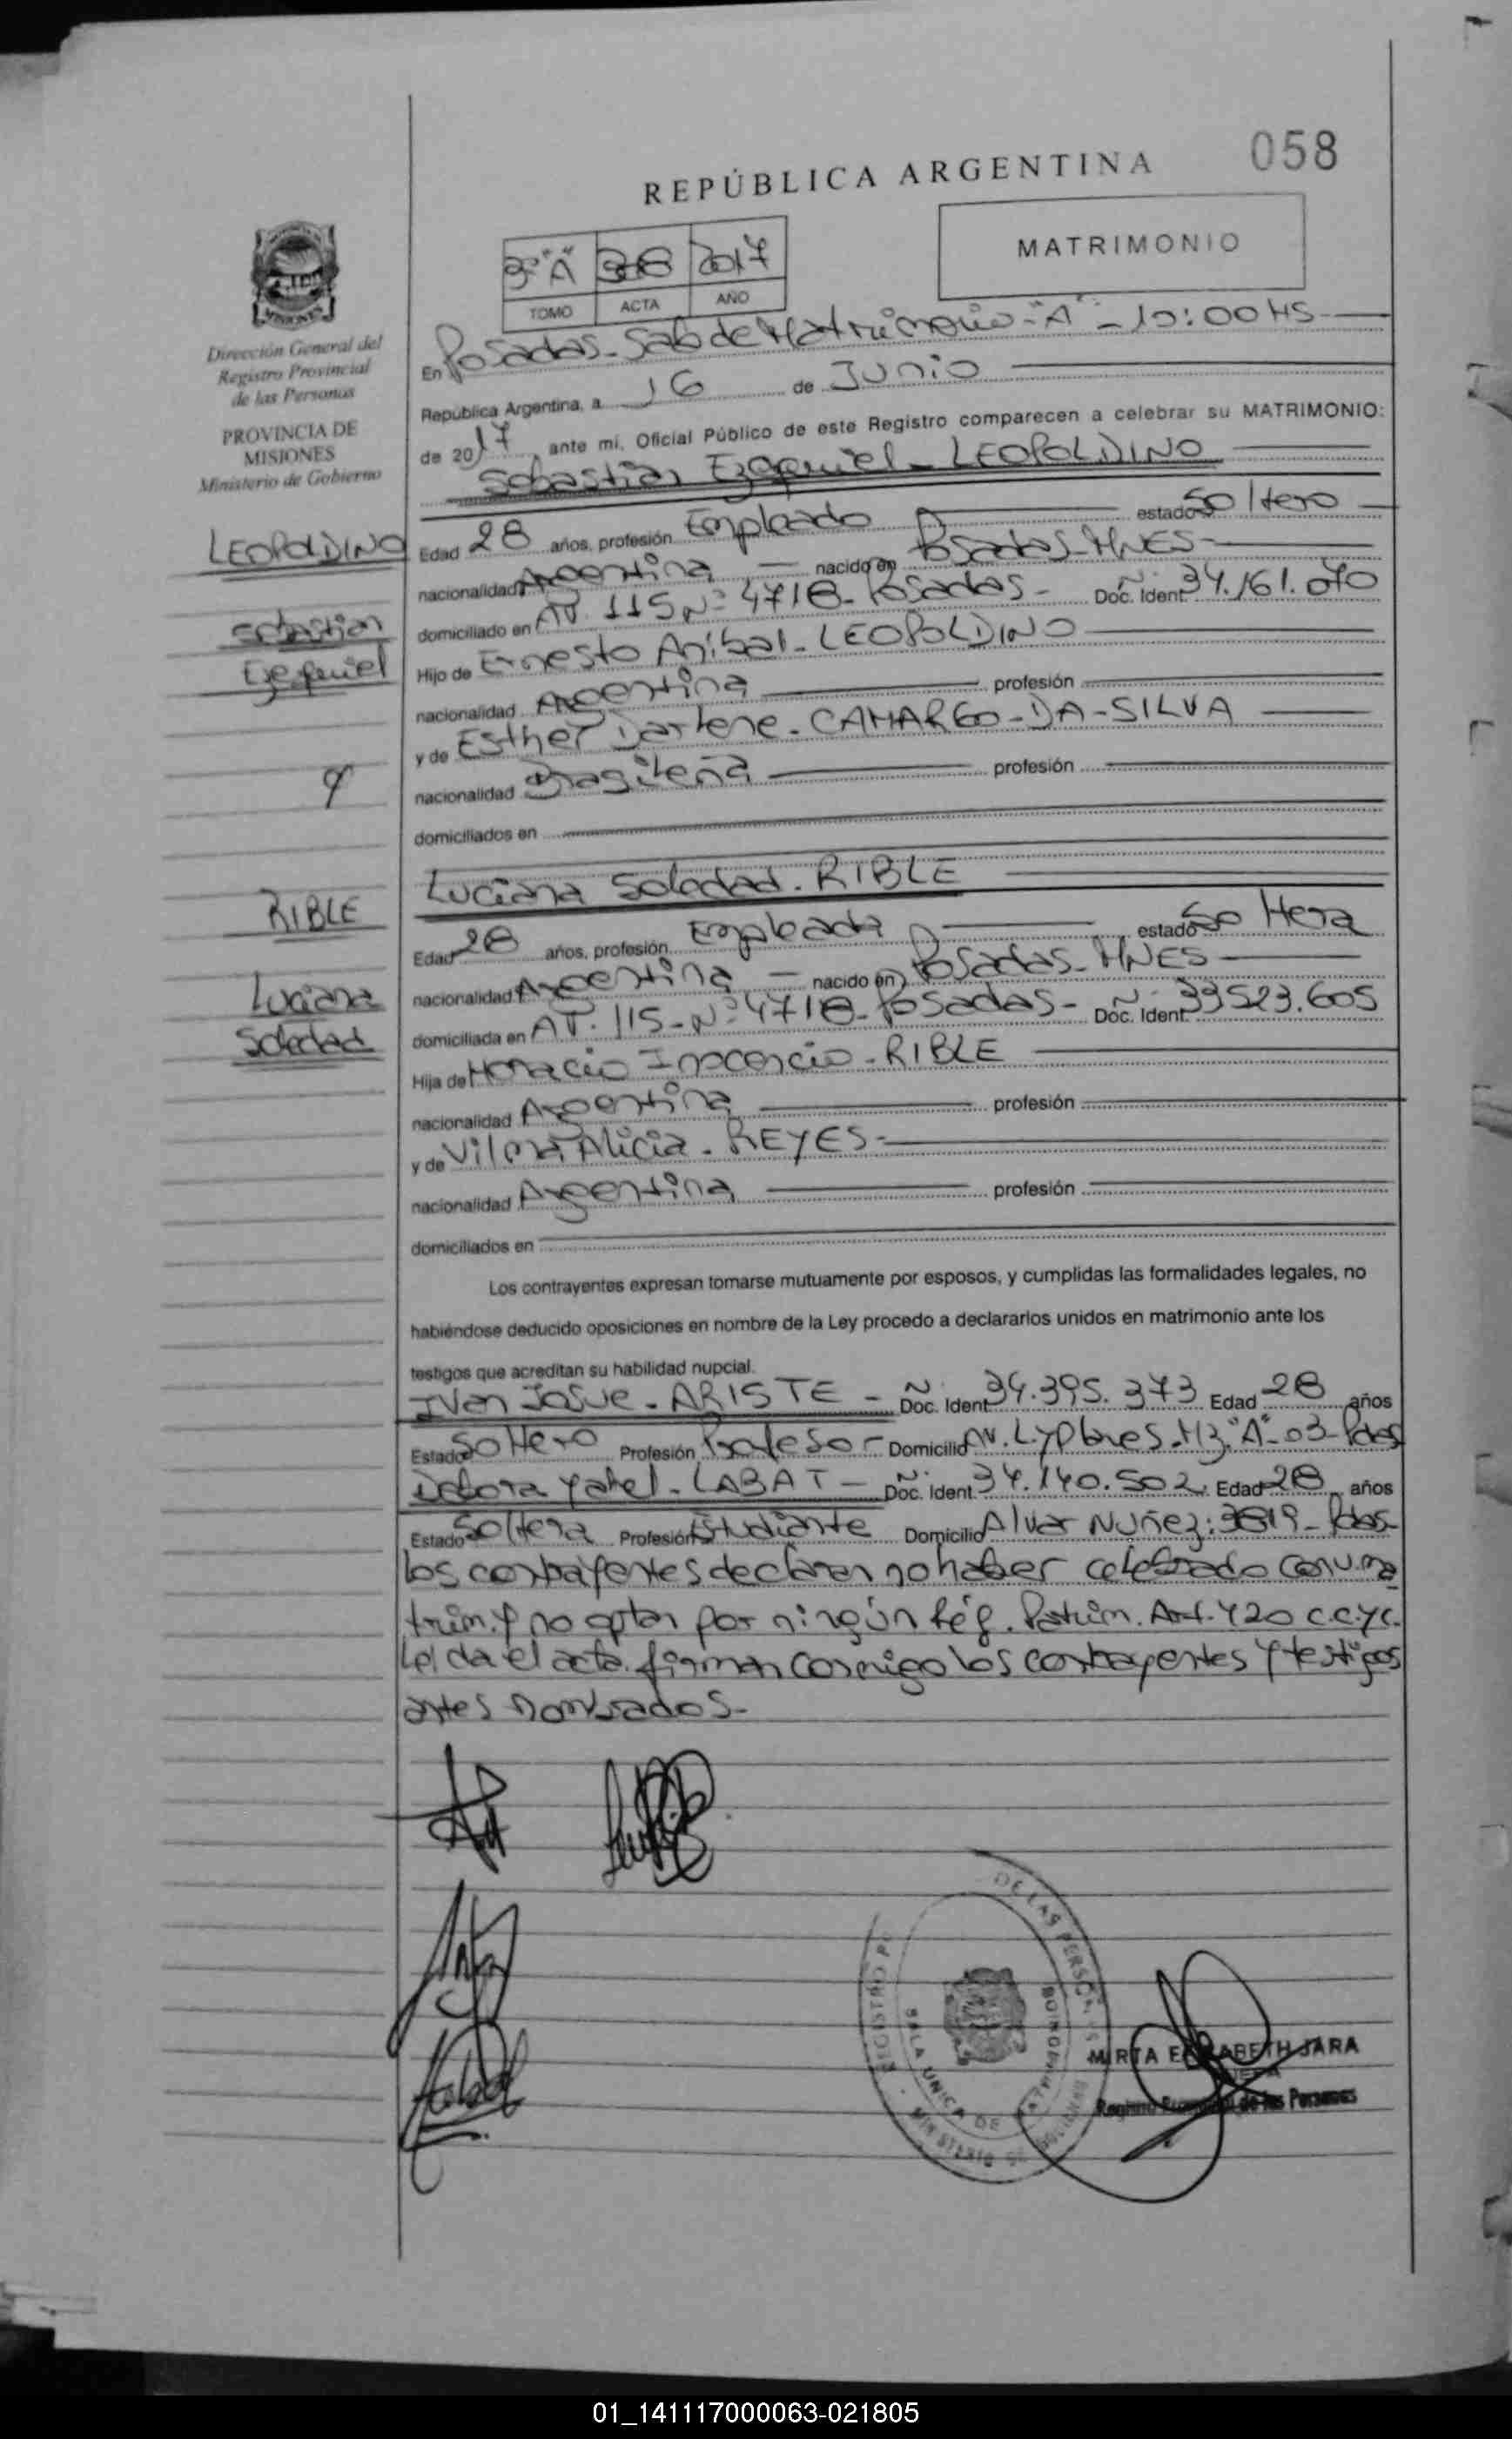 058
REPÚBLICA ARGENTINA
MATRIMONIO
3º "A" 2017
TOMO ACTA AÑO
Dirección General del
Registro Provincial
de las Personas
PROVINCIA DE
MISIONES
Ministerio de Gobierno
En Posadas - Sala de Matrimonio - "A" - 10:00 HS
República Argentina, a 16 de Junio
de 2017, ante mi, Oficial Público de este Registro comparecen a celebrar su MATRIMONIO:
Sebastián Ezequiel - LEOPOLDINO
LEOPOLDINO
Sebastián
Ezequiel
Edad 28 años, profesión Empleado estado Soltero
nacionalidad Argentina nacido en Posadas - MNES
domiciliado en AV. 115 Nº 4718 - Posadas - Doc. Ident. 34.161.070
Hijo de Ernesto Aníbal - LEOPOLDINO
nacionalidad Argentina profesión
y de Esther Darlene - CAMARGO - DA - SILVA
nacionalidad Brasileña profesión
domiciliados en
y
Luciana Soledad - RIBLE
RIBLE
Luciana
Soledad
Edad 28 años, profesión Empleada estado Soltera
nacionalidad Argentina nacido en Posadas - MNES
domiciliada en AV. 115 - Nº 4718 - Posadas - Doc. Ident. 33523.605
Hija de Horacio Inocencio - RIBLE
nacionalidad Argentina profesión
y de Vilma Alicia - REYES
nacionalidad Argentina profesión
domiciliados en
Los contrayentes expresan tomarse mutuamente por esposos, y cumplidas las formalidades legales, no
habiéndose deducido oposiciones en nombre de la Ley procedo a declararlos unidos en matrimonio ante los
testigos que acreditan su habilidad nupcial.
Iván Josue - ARISTE - Doc. Ident. 34.395.373 Edad 28 años
Estado Soltero Profesión Profesor - Domicilio AV. L. y Planes - Mz. "A" - 03 - Pdas
Débora Yatel - LABAT - Doc. Ident. 34.140.502 Edad 28 años
Estado Soltera Profesión Estudiante Domicilio Alvar Nuñez: 3819 - Pdas -
Los contrayentes declaran no haber celebrado conv. ma
trim. y no optan por ningún Rég. Patrim. Art. 420 c.c.y c.
Leída el acta firman conmigo los contrayentes y testigos
antes nombrados -
DE LAS PERSONAS
SALA UNICA DE MATRIMONIOS
MINISTERIO DE GOBIERNO
MIRTA ELIZABETH JARA
JEFA
Registro Provincial de las Personas
01_141117000063-021805